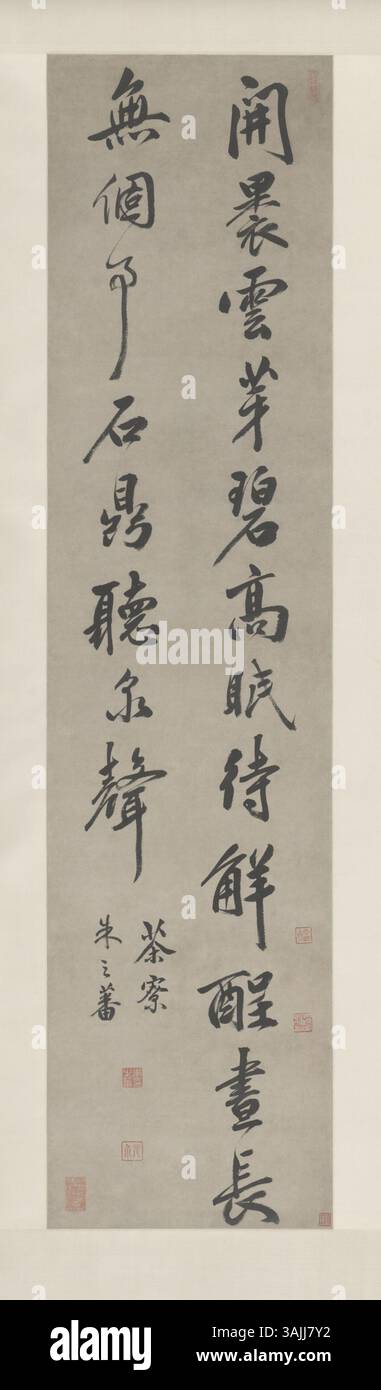 開裹雲芽碧高眠待觧酲晝長
無個事石鼎聽泉聲
茶寮
朱之蕃
alamy
alamy
Image ID: 3AJJ7Y2
www.alamy.com